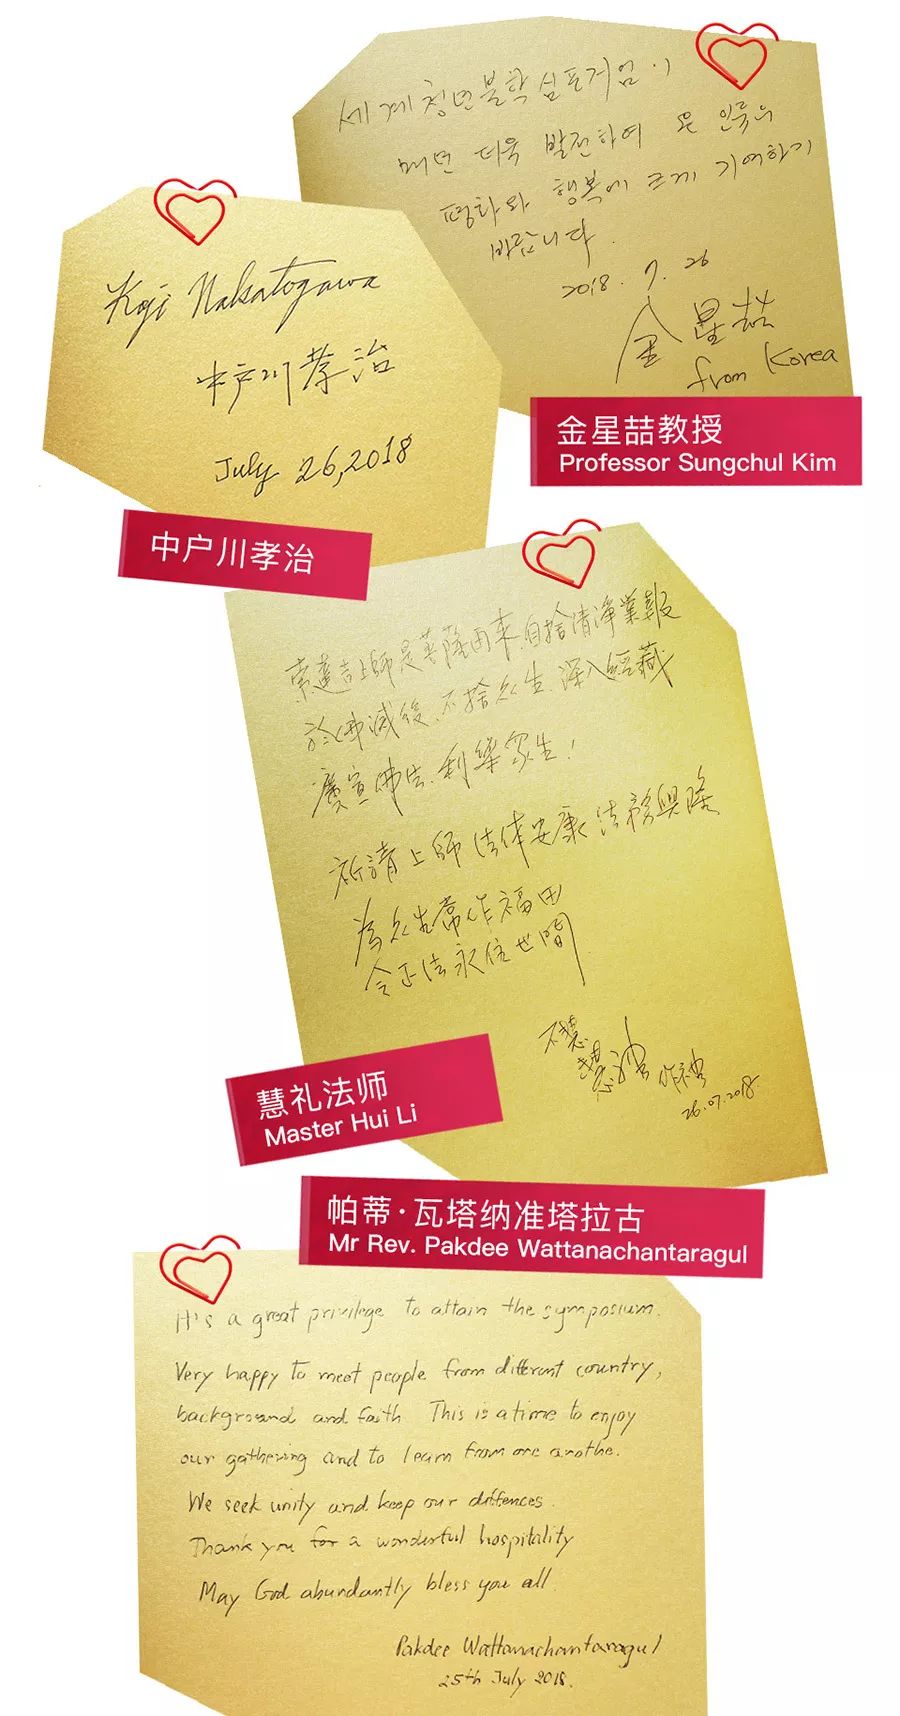 세계청년불학심포지엄이
매년 더욱 발전하여 온 인류의
평화와 행복에 크게 기여하기
바랍니다.
2018. 7. 26
金星喆
from Korea
金星喆教授
Professor Sungchul Kim
Koji Nakatogawa
中戸川孝治
July 26, 2018
中户川孝治
索達吉上師是菩薩再來,自捨清淨業報
於佛滅後,不捨众生,深入經藏
廣宣佛法,利樂眾生!
祈請上師法体安康 法務興隆
為众生常作福田
令正法永住世間
26.07.2018.
慧礼法师
Master Hui Li
帕蒂·瓦塔纳准塔拉古
Mr Rev. Pakdee Wattanachantaragul
It's a great privilege to attain the symposium.
Very happy to meet people from different country,
background and faith. This is a time to enjoy
our gathering and to learn from one anothe.
We seek unity and keep our diffences.
Thank you for a wonderful hospitality
May God abundantly bless you all.
Pakdee Wattanachantaragul
25th July 2018.